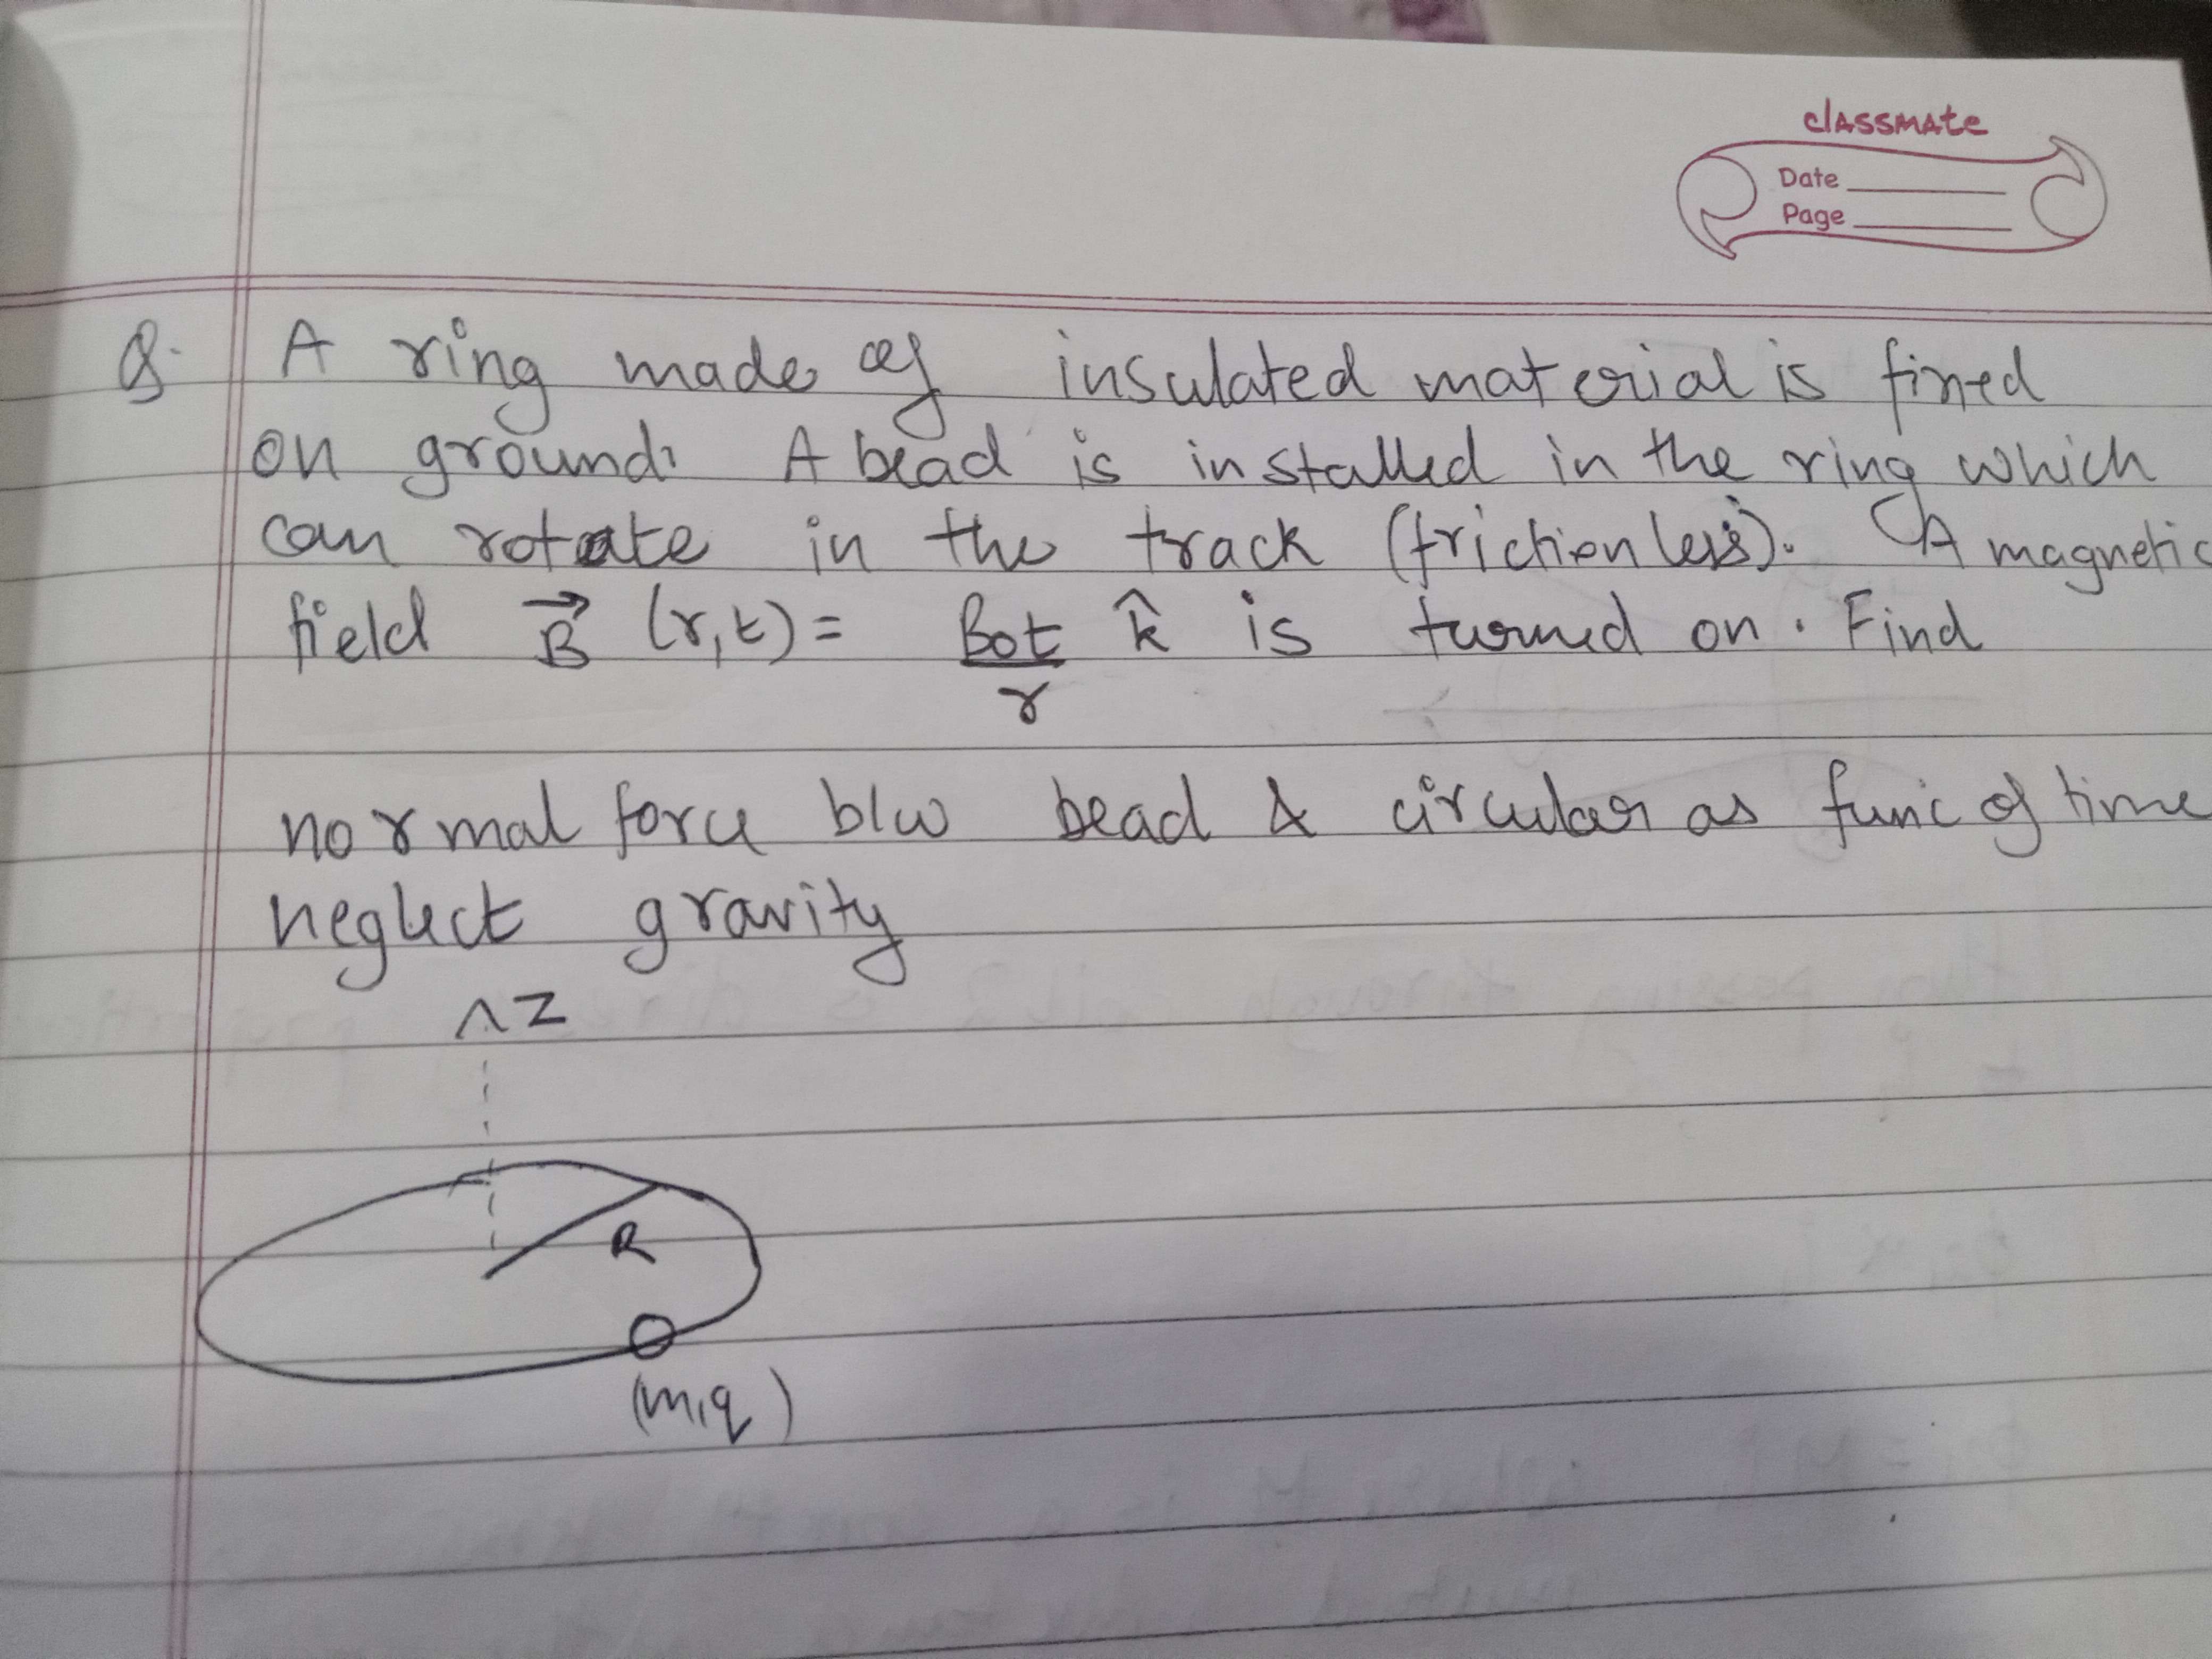 classmate
Date
Page
Q. A ring made of insulated material is fixed
on ground. A bead is installed in the ring which
can rotate in the track (frictionless). A magnetic
field B⃗ (r,t) = B₀t/r k̂ is turned on. Find
normal force b/w bead & circular as func of time
neglect gravity
Z
R
(m,q)